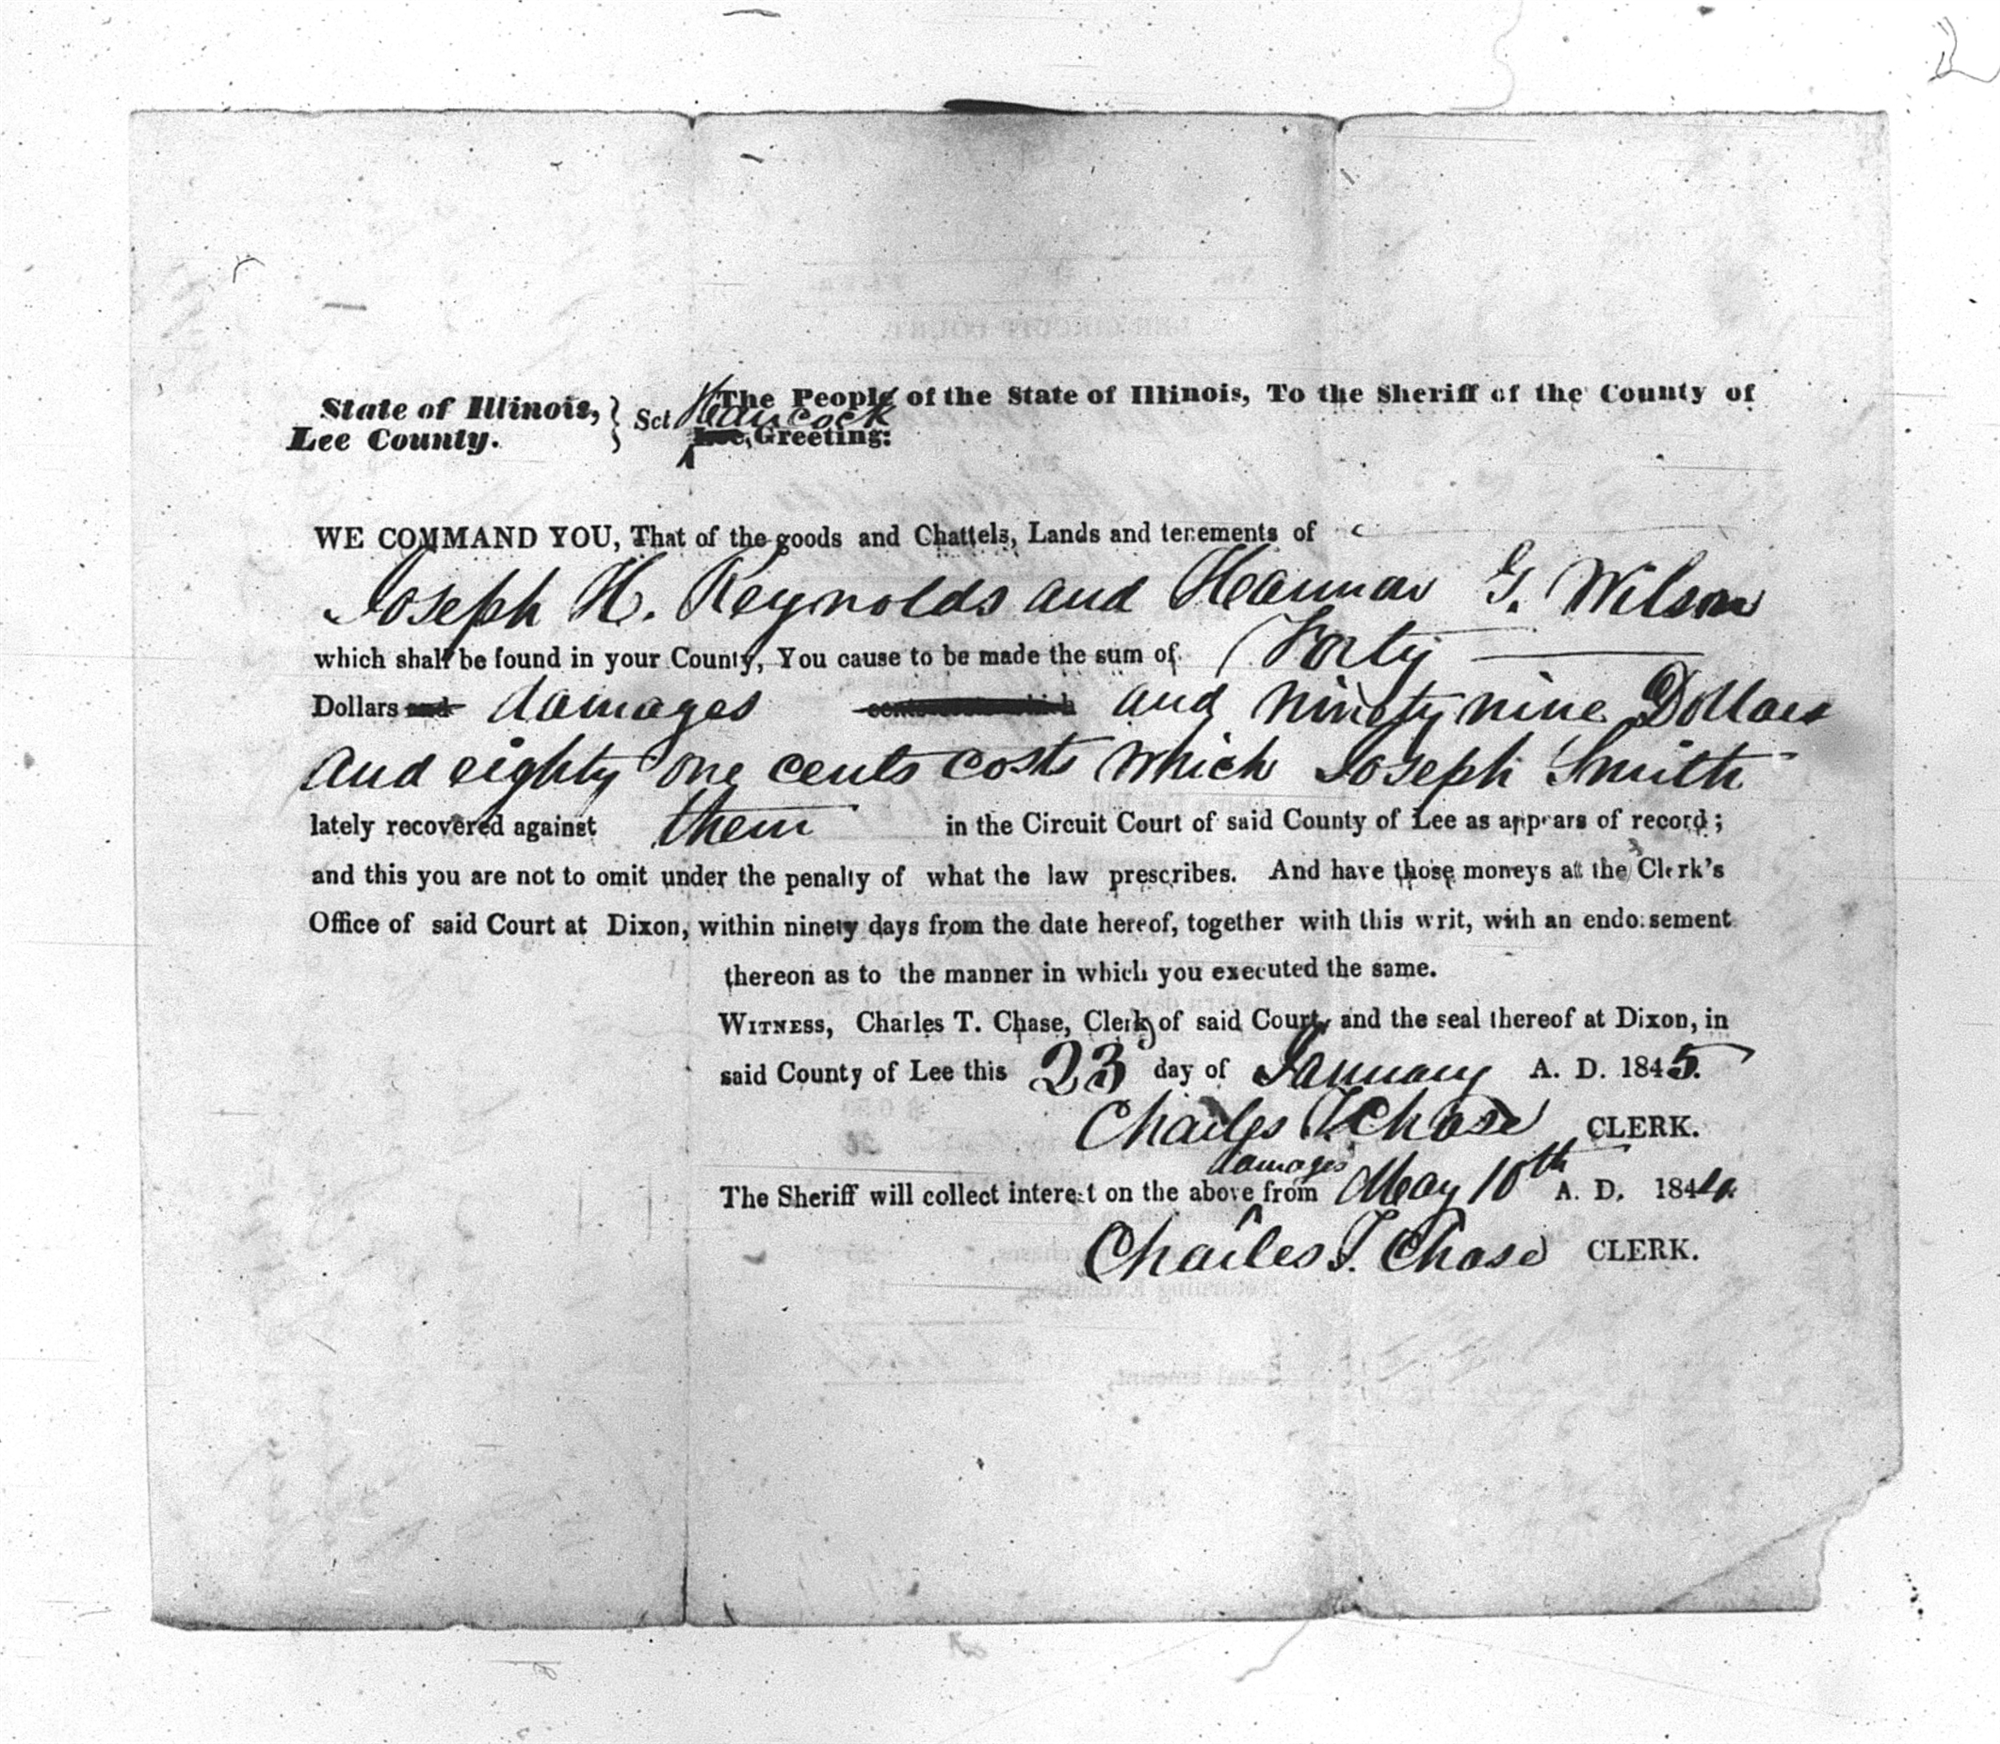 State of Illinois, } Sct The People of the State of Illinois, To the Sheriff of the County of
Lee County. Hancock Lee, Greeting:
WE COMMAND YOU, That of the goods and Chattels, Lands and tenements of
Joseph H. Reynolds and Harmon G. Wilson
which shall be found in your County, You cause to be made the sum of Forty
Dollars and damages cents costs which and ninety nine Dollars
and eighty one cents costs which Joseph Smith
lately recovered against them in the Circuit Court of said County of Lee as appears of record;
and this you are not to omit under the penalty of what the law prescribes. And have those moneys at the Clerk's
Office of said Court at Dixon, within ninety days from the date hereof, together with this writ, with an endorsement
thereon as to the manner in which you executed the same.
WITNESS, Charles T. Chase, Clerk of said Court, and the seal thereof at Dixon, in
said County of Lee this 23 day of January A. D. 1845.
Charles T. Chase CLERK.
damages
The Sheriff will collect interest on the above from May 10th A. D. 1844.
Charles T. Chase CLERK.